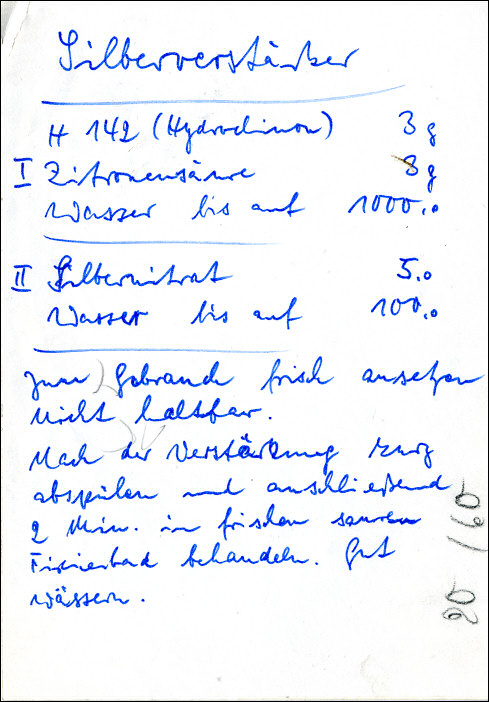 Silberverstärker
H 142 (Hydrochinon) 3 g
I Zitronensäure 3 g
Wasser bis auf 1000.0
II Silbernitrat 5.0
Wasser bis auf 100.0
zum Gebrauch frisch ansetzen
nicht haltbar.
Nach der Verstärkung kurz
abspülen und anschließend
2 Min. in frischen sauren
Fixierbad behandeln. Gut
wässern.
20 /60